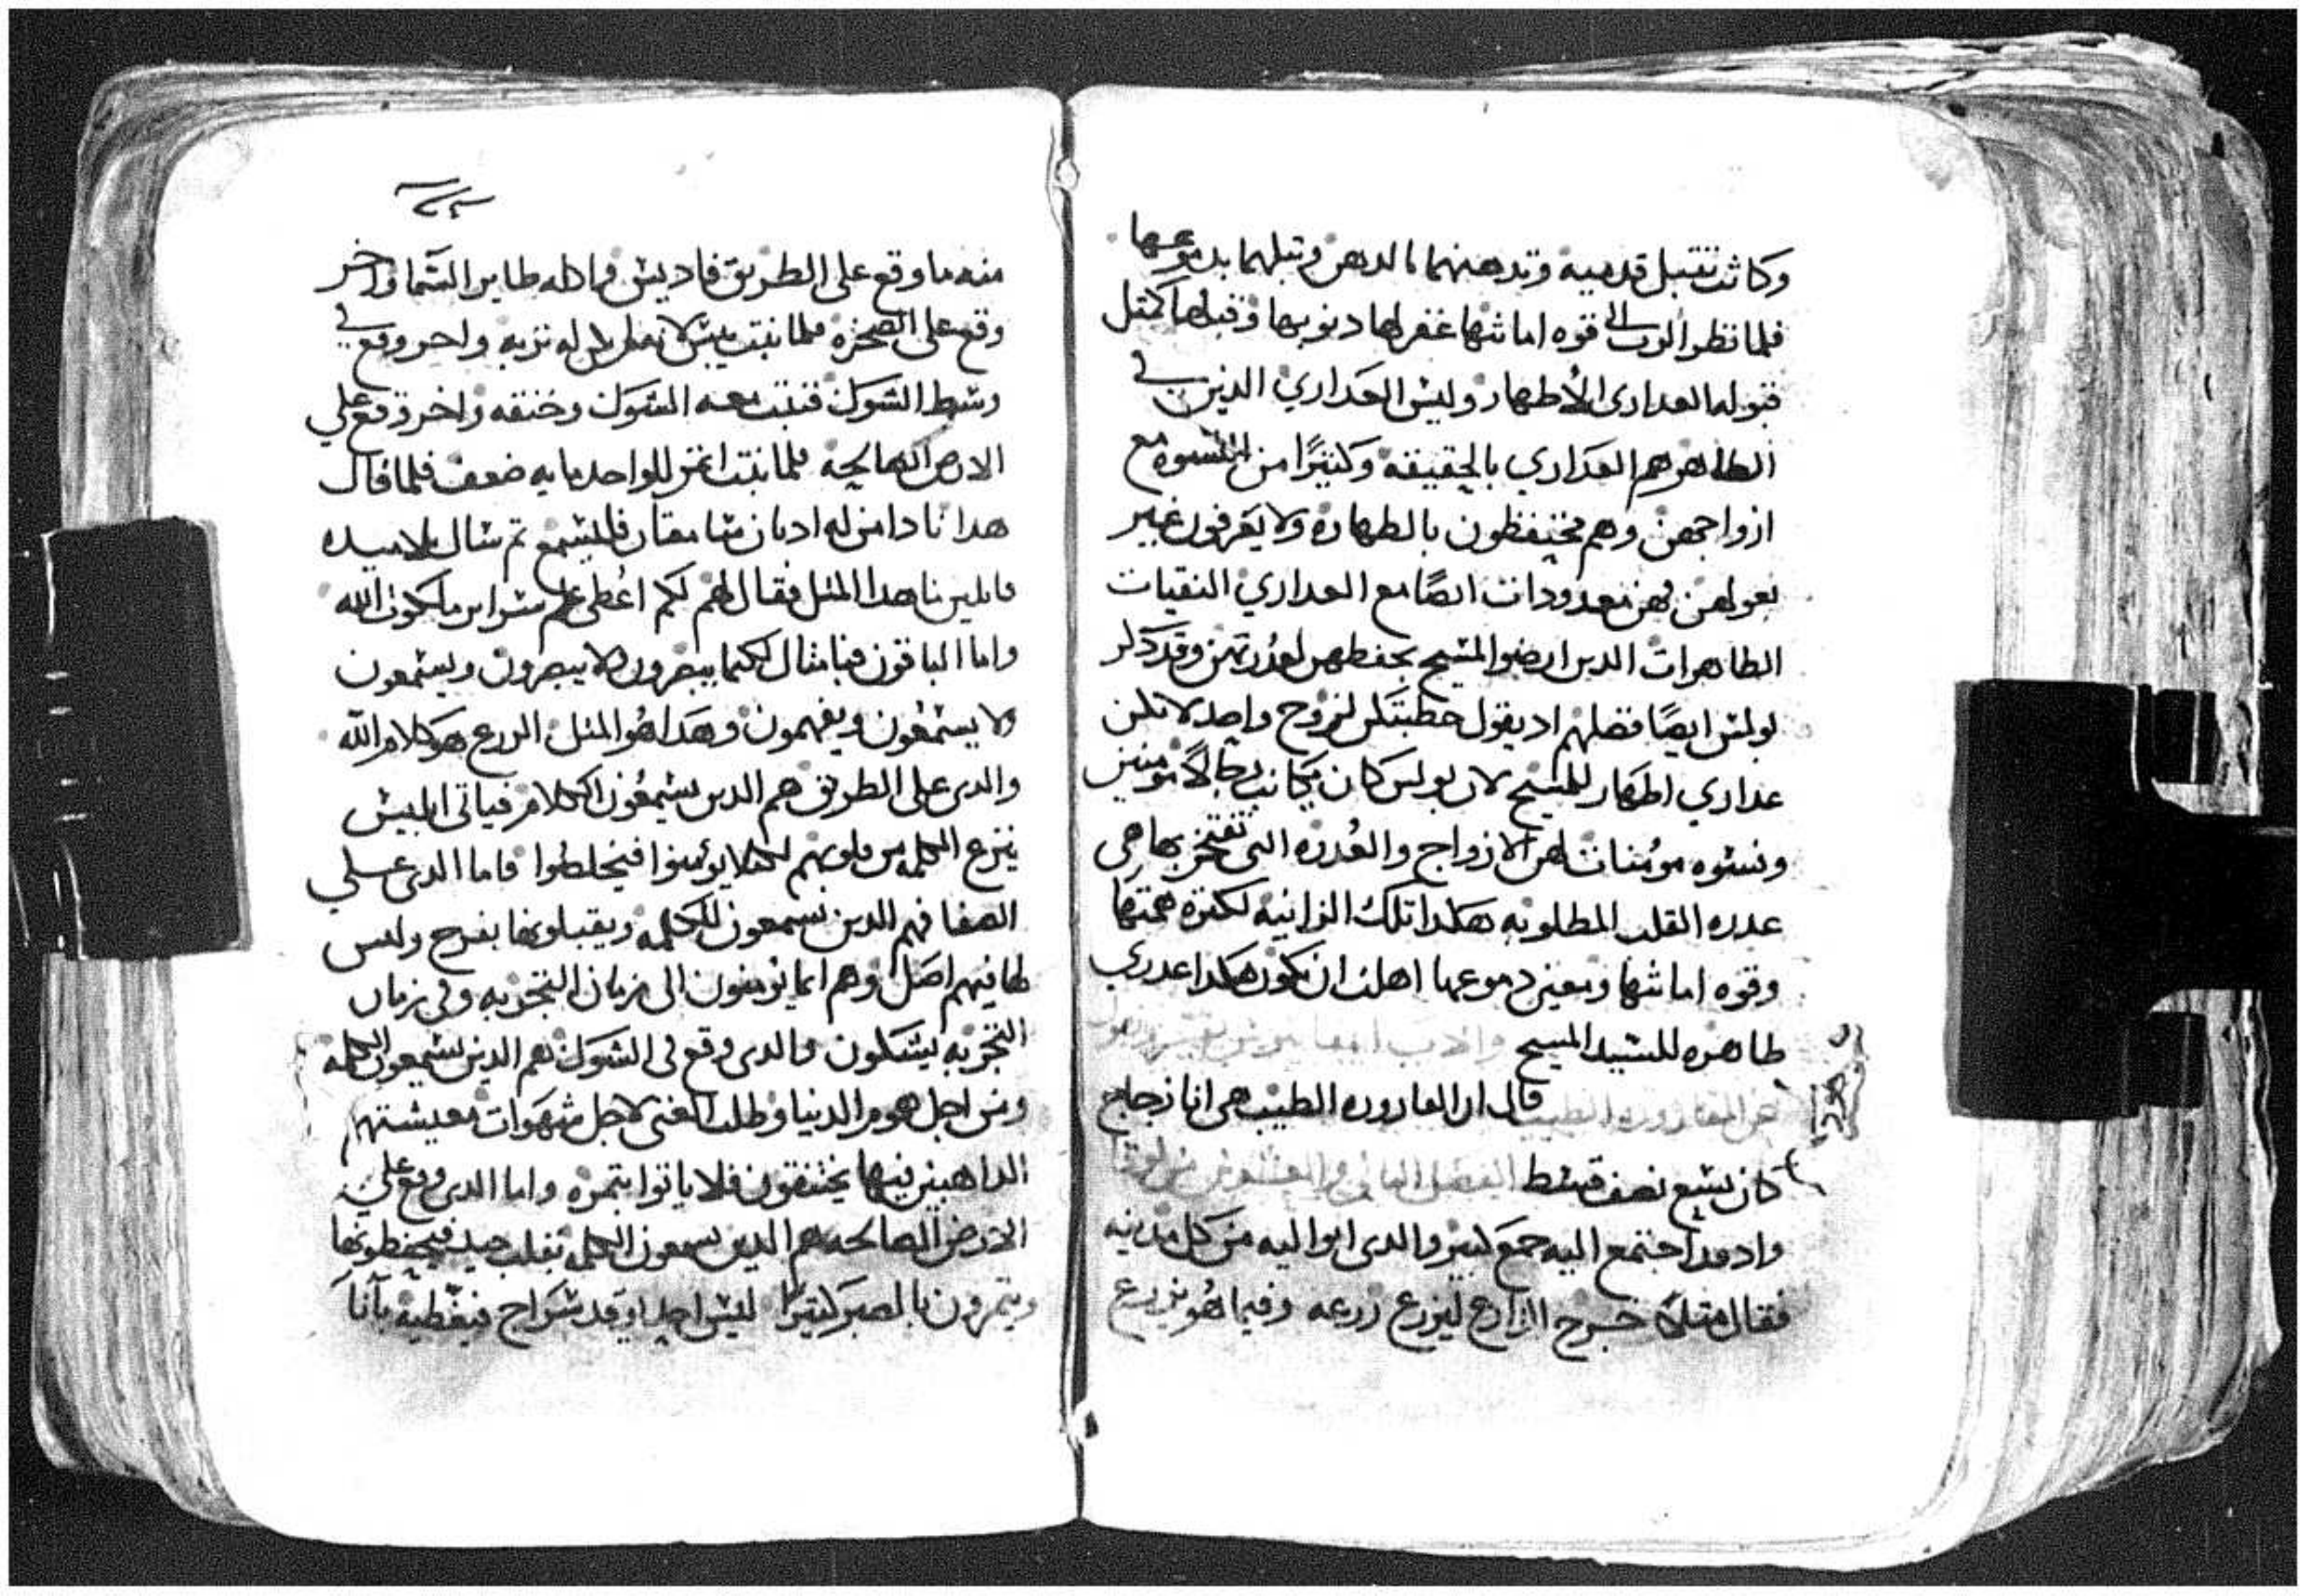 وكانت تقبل قدميه وتدهنهما بالدهن وتبلهما بدموعها
فلما نظر الرب الى قوه امانتها غفر لها دنوبها وقبلها كمتل
قبوله العدارى الأطهار وليس العداري الذين في
الظاهر هم العداري بالحقيقه وكثيرًا من النسوه مع
ازواجهن وهم محتفظون بالطهاره ولا يعرفون غير
بعولهن فهن معدودات ايضًا مع العداري النقيات
الطاهرات الدين ارضوا المسيح بحفظهن لعدرتهن وقد دكر
بولس ايضًا فضلهم اد يقول خطبتكن لزوج واحد لاتكن
عداري اطهار للمسيح لان بولس كان يكاتب رجالًا مومنين
ونسوه مؤمنات لهن الازواج والعُدره التى تفتخر بها هي
عدره القلب المطلوبه هكدا تلك الزانيه لكتره محبتها
وقوه امانتها ومعين دموعها اهلت ان تكون هكدا عدري
طاهره للسيد المسيح
قال ان القاروره الطيب هى انا زجاج
كان يسع نصف قسط الفصل التانى والعشرون من لوقا
واد قد اجتمع اليه جمع كبير والدى اتوا اليه من كل مدينه
فقال متلًا خرج الزارع ليزرع زرعه وفيما هُو يزرع
منه ما وقع على الطريق فاديس واكله طاير السما واخر
وقع على الصخره فلما نبت يبس لانه لم يكن له تربه واخر وقع في
وسط الشوك فنبت معه الشوك وخنقه واخر وقع علي
الارض الصالحه فلما نبت اتمر للواحد مايه ضعف فلما قال
هدا نادا من له ادنان سامعتان فليسمع تم سال تلاميده
قايلين ما هدا المتل فقال لهم لكم اعُطى علم سراير ملكوت الله
واما الباقون فبامثال لكيما يبصرون ولا يبصرون ويسمعون
ولا يسمعون ويفهمون وهدا هُو المتل الزرع هو كلام الله
والدى على الطريق هم الدين يسمعُون الكلام فياتى ابليس
ينزع الكلمه من قلوبهم لكيلا يؤمنوا فيخلصوا فاما الدى علي
الصفا فهم الدين يسمعون الكلمه ويقبلونها بفرح وليس
لها فيهم اصل وهم انما يومنون الى زمان التجربه وفى زمان
التجربه يشكون والدى وقع فى الشوك هم الدين يسمعون الكلمه
ومن اجل هموم الدنيا وطلب الغنى لاجل شهوات معيشتهم
الداهبين فيها يختنقون فلا ياتوا بتمره واما الدى وقع علي
الارض الصالحه هم الدين يسمعون الكلمه بقلب جيد فيحفظونها
ويتمرون بالصبر كتيرًا ليس احد يوقد سراج فيغطيه بآنآ